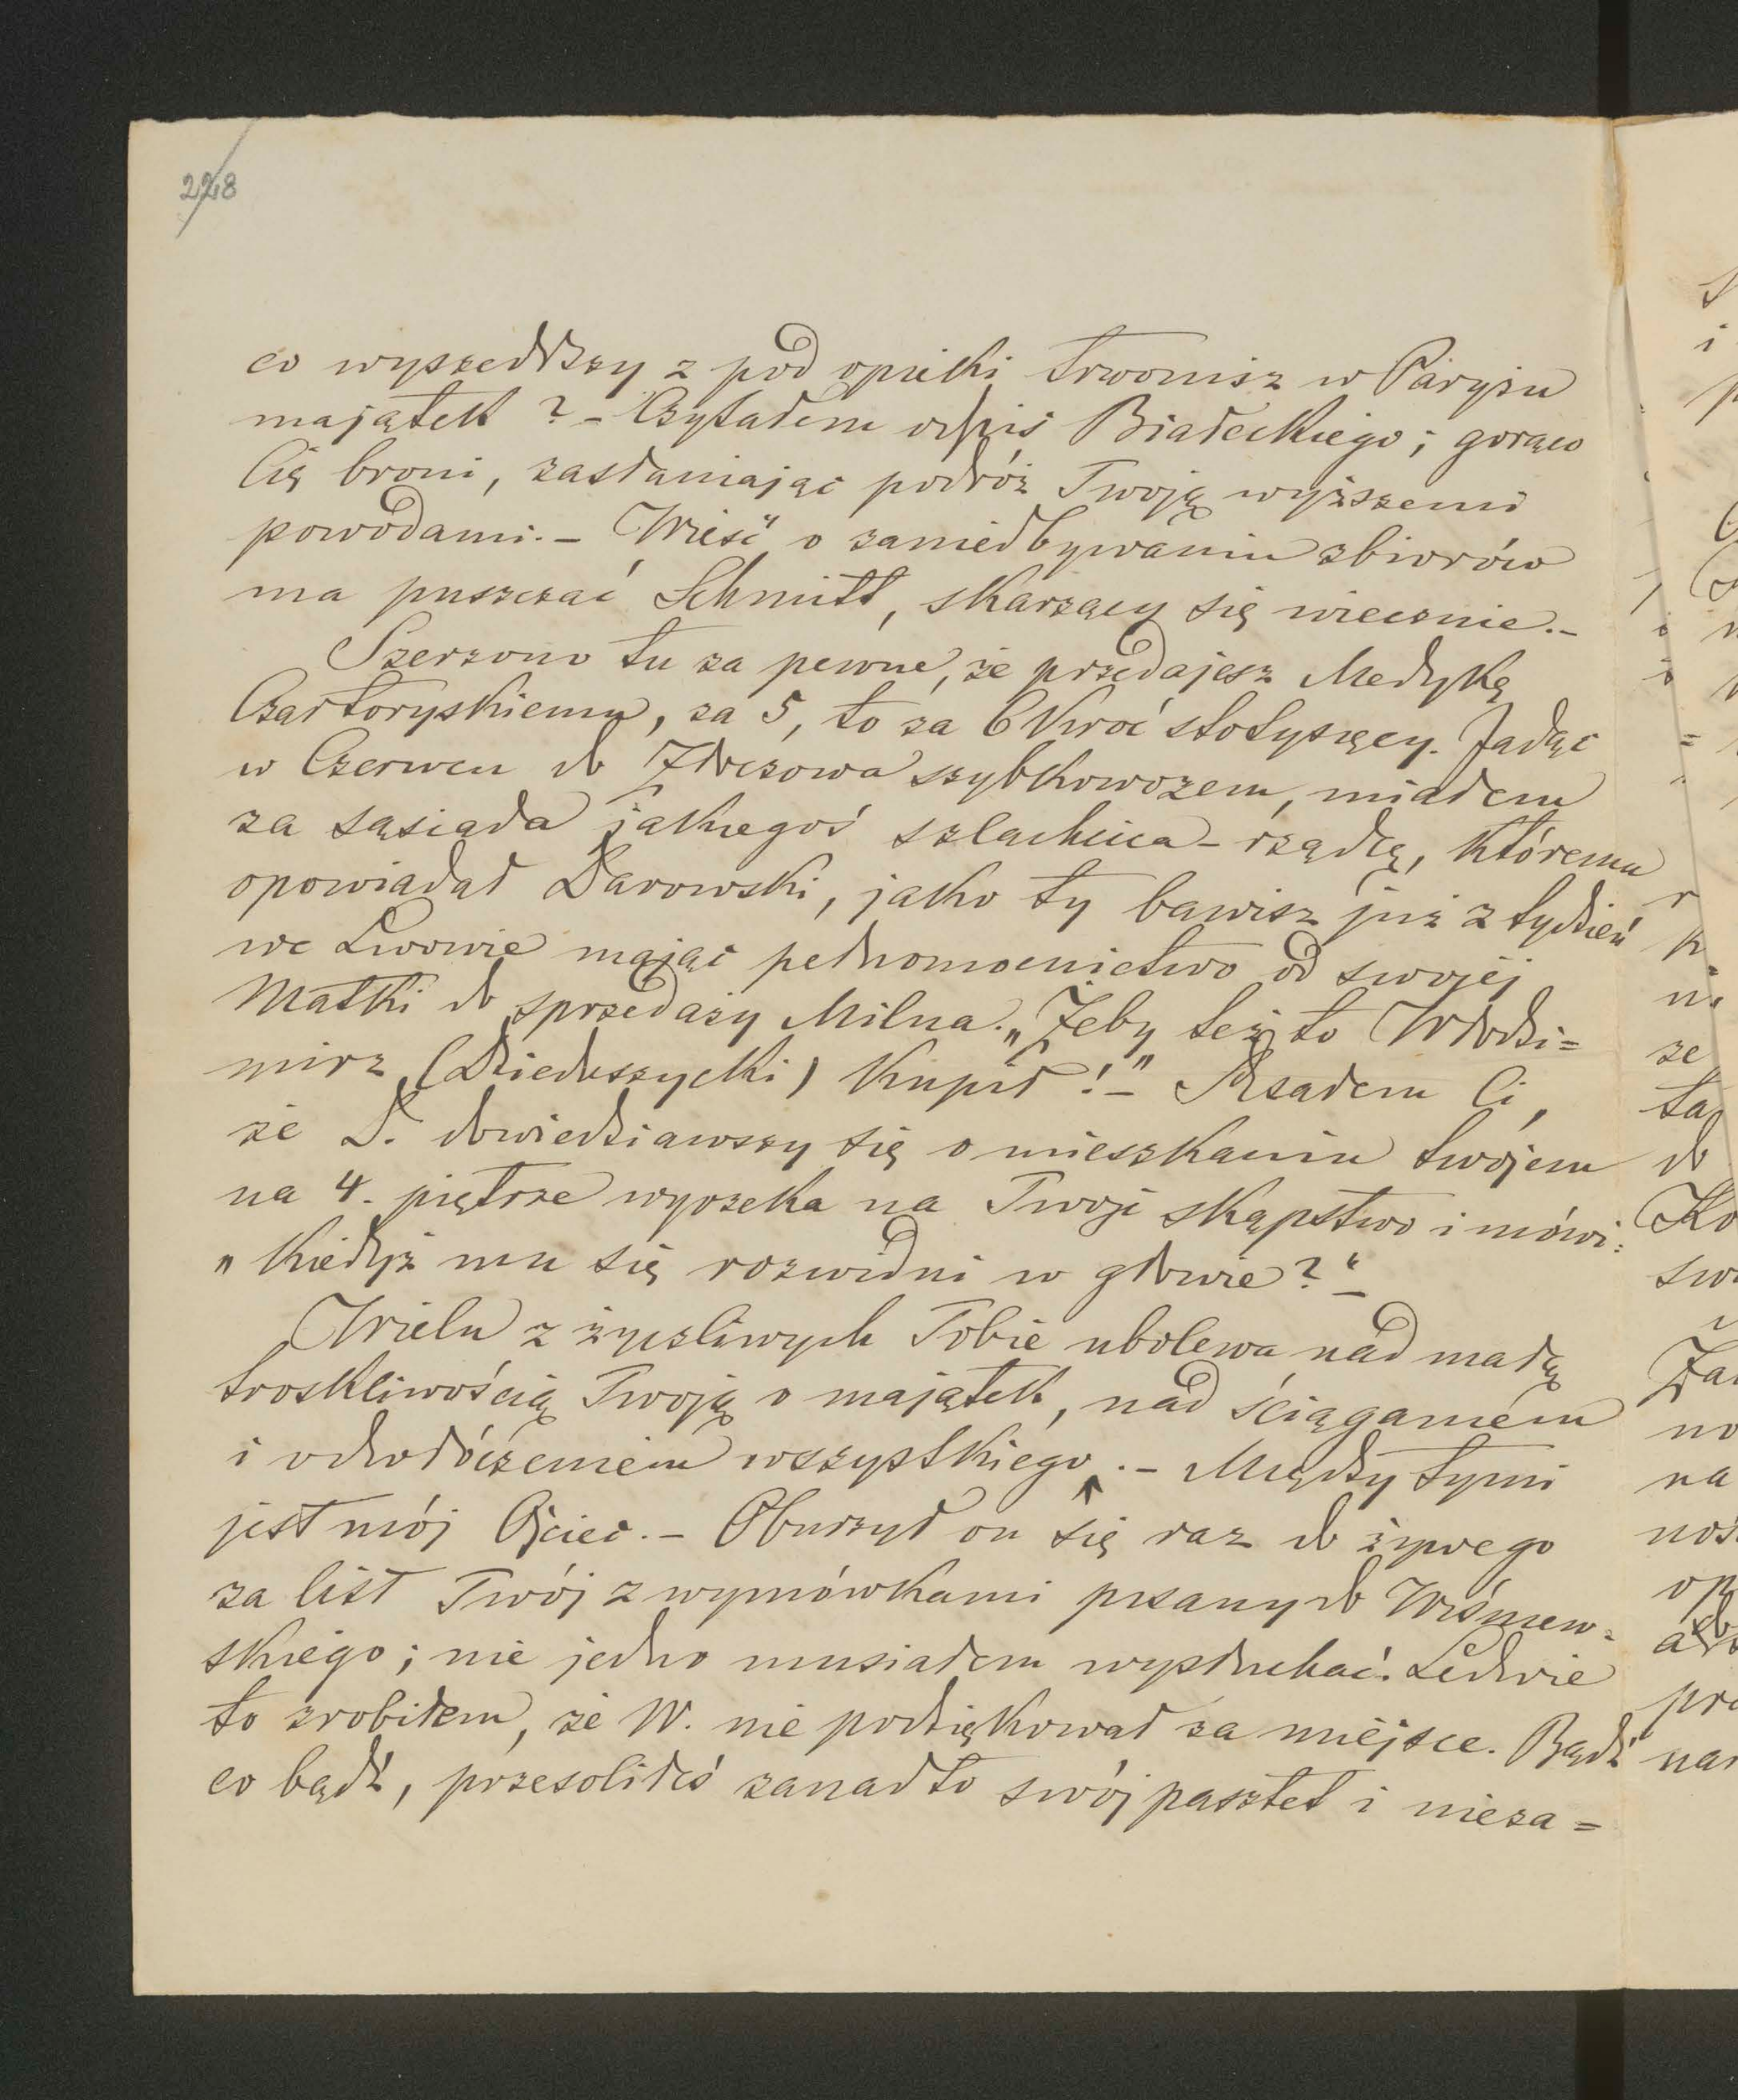 228
co wyszedłszy z pod opieki trwonisz w Paryżu
majątek? – Czytałem odpis Białeckiego; gorąco
Cię broni, zasłaniając podróż Twoją wyższemi
powodami. – Wieść o zaniedbywaniu zbiorów
ma puszczać Schmitt, skarżący się wiecznie. –
Szerzono tu za pewne, że przedajesz Medykę
Czartoryskiemu, za 5, to za 6 kroć stotysięcy. Jadąc
w Czerwcu do szybkowozem, miałem
za sąsiada jakiegoś szlachcica – rządcę, któremu
opowiadał Darowski, jako ty bawisz już z tydzień
we Lwowie mając pełnomocnictwo od swojéj
Matki do sprzedaży Milna. „Żeby też to Włodzi=
mirz (Dzieduszycki) kupił! –" Pisałem Ci,
że D. dowiedziawszy się o mieszkaniu twójem
na 4. piętrze wyrzeka na Twoje skąpstwo i mówi:
„Kiedyż mu się rozwidni w głowie?" –
Wielu z życzliwych Tobie ubolewa nad małą
troskliwością Twoją o majątek, nad ściąganiem
i odwłóczeniem wszystkiego. – Między tymi
jest mój Ojciec. – Oburzył on się raz do żywego
za list Twój z wymówkami pisany do Wiśniew=
skiego; nie jedno musiałem wysłuchać. Ledwie
to zrobiłem, że W. nie podziękował za miejsce. Bądź
co bądź, przesoliłeś zanadto swój pasztet i nieza=